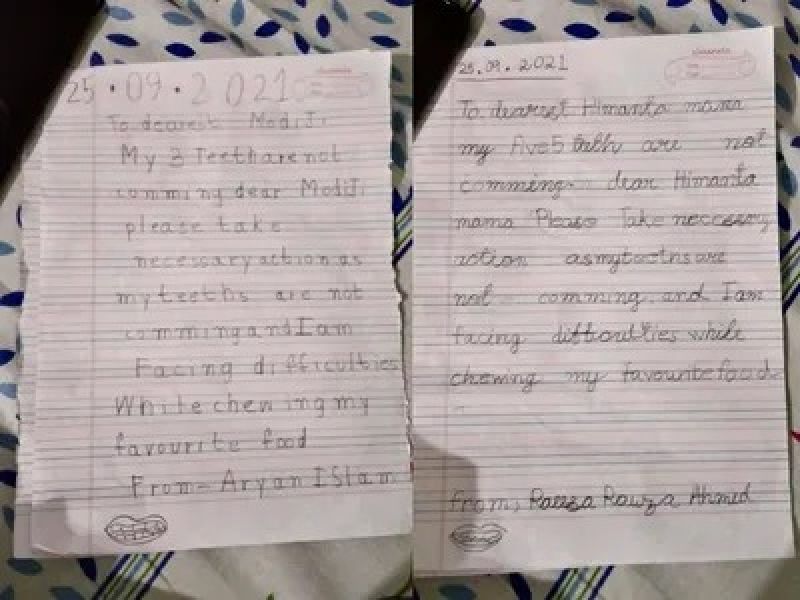 25.09.2021
To dearest ModiJi
My 3 Teeth are not
comming dear ModiJi
please take
necessary action as
my teeths are not
comming and I am
Facing difficulties
While chewing my
favourite food
From- Aryan ISlam
25.09.2021
To dearest Himanta mama
my five5 teeth are not
comming. dear Himanta
mama Please Take neccessary
action as my teeths are
not comming and I am
facing difficulties while
chewing my favourite foods
from, Raeza Rawza Ahmed